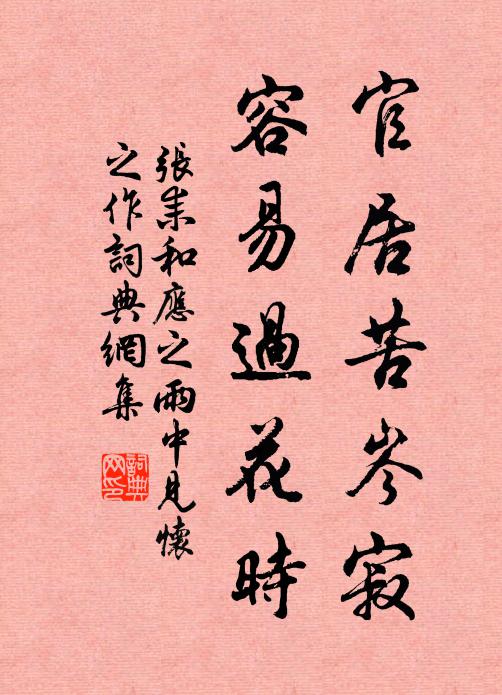 官居苦岑寂
容易過花時
張耒和應之雨中見懷
之作詞典網集
詞典網印